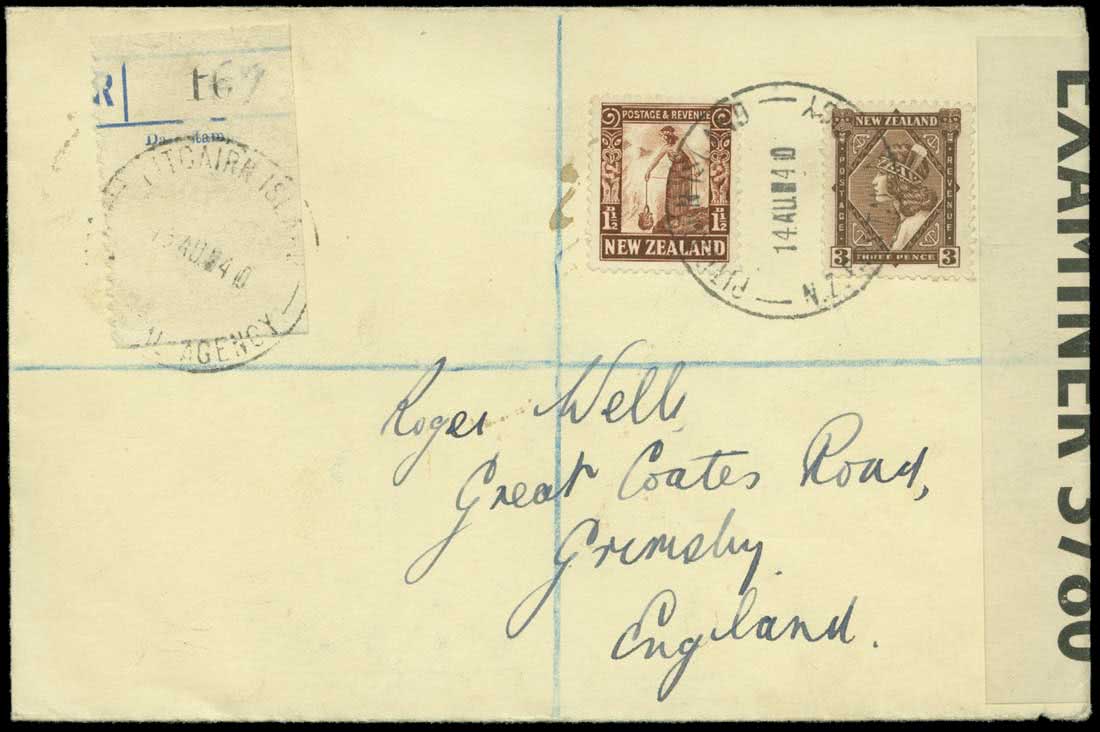 R 167
Da stam
PITCAIRN ISLAND
AU 40
N.Z. AGENCY
POSTAGE & REVENUE
1½ D D 1½
NEW ZEALAND
PITCAIRN ISLAND
14 AU 40
N.Z. AGENCY
NEW ZEALAND
POSTAGE REVENUE
3 THREE PENCE 3
EXAMINER 5780
Roger Wells,
Great Coates Road,
Grimsby
England.